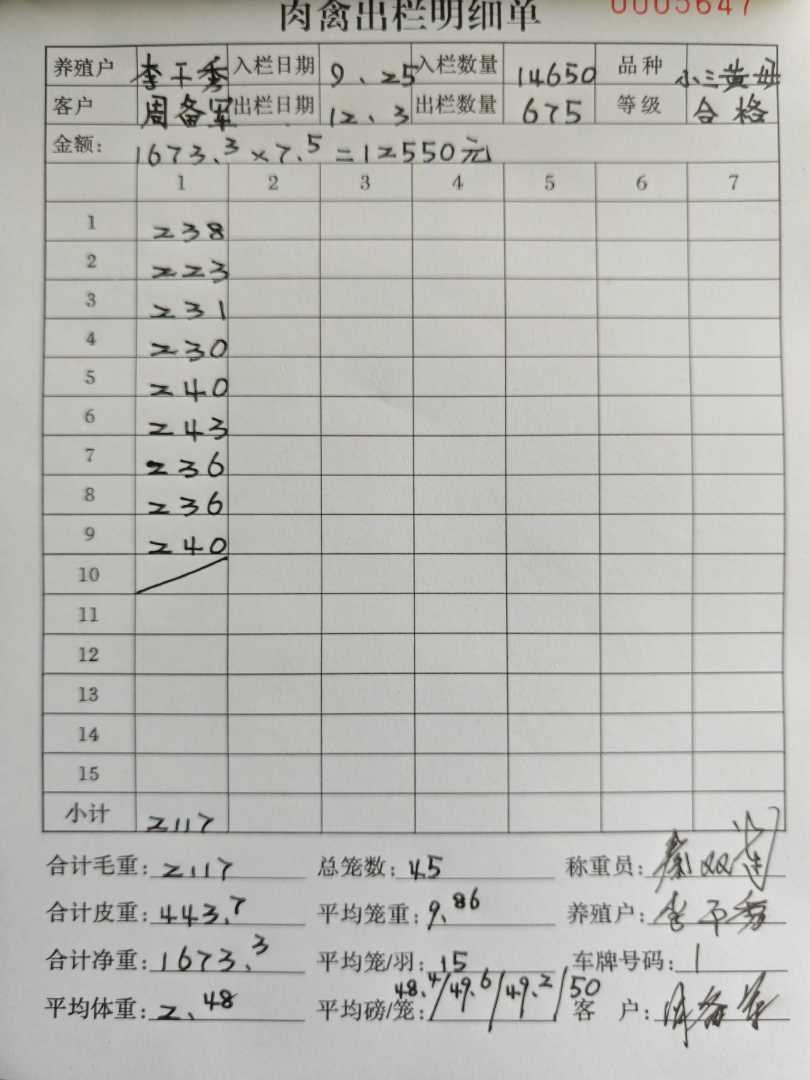 肉禽出栏明细单 0005647
养殖户 李干秀 入栏日期 9.25 入栏数量 14650 品种 小三黄母
客户 周备军 出栏日期 12.3 出栏数量 675 等级 合格
金额: 1673.3×7.5=12550元
1 2 3 4 5 6 7
1 238
2 223
3 231
4 230
5 240
6 243
7 236
8 236
9 240
10
11
12
13
14
15
小计 2117
合计毛重: 2117 总笼数: 45 称重员:
合计皮重: 443.7 平均笼重: 9.86 养殖户: 李干秀
合计净重: 1673.3 平均笼/羽: 15 车牌号码: 1
平均体重: 2.48 平均磅/笼: 48.4/49.6/49.2/50 客 户: 周备军